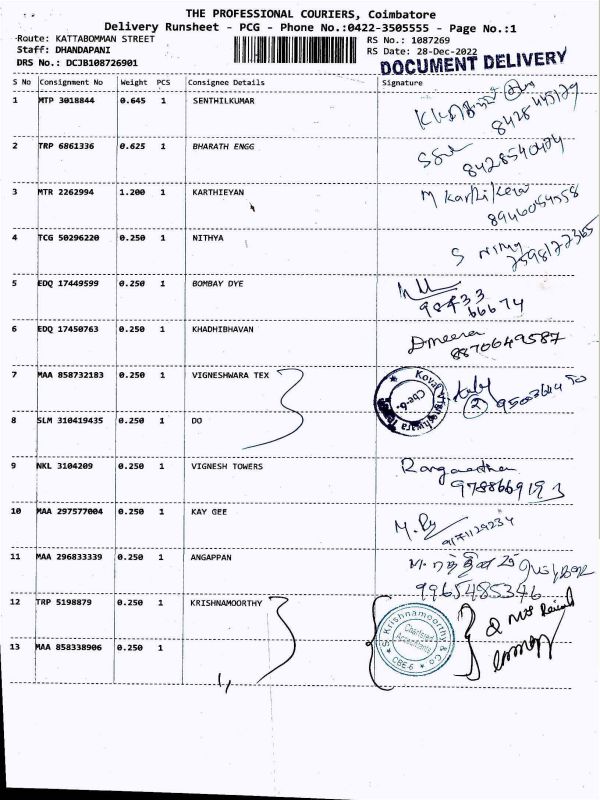 THE PROFESSIONAL COURIERS, Coimbatore
Delivery Runsheet - PCG - Phone No.:0422-3505555 - Page No.:1
Route: KATTABOMMAN STREET
Staff: DHANDAPANI
DRS No.: DCJB108726901
RS No.: 1087269
RS Date: 28-Dec-2022
DOCUMENT DELIVERY
S No Consignment No Weight PCS Consignee Details Signature
1 MTP 3018844 0.645 1 SENTHILKUMAR
2 TRP 6861336 0.625 1 BHARATH ENGG
8428540474
3 MTR 2262994 1.200 1 KARTHIEYAN M Karthikeyan
4 TCG 50296220 0.250 1 NITHYA
5 EDQ 17449599 0.250 1 BOMBAY DYE
98433
66674
6 EDQ 17450763 0.250 1 KHADHIBHAVAN Ameena
8870649587
7 MAA 858732183 0.250 1 VIGNESHWARA TEX
Kovai Vigneshwara Tex
Cbe-6.
8 SLM 310419435 0.250 1 DO
9 NKL 3104209 0.250 1 VIGNESH TOWERS
9788669193
10 MAA 297577004 0.250 1 KAY GEE
11 MAA 296833339 0.250 1 ANGAPPAN
9965485346
12 TRP 5198879 0.250 1 KRISHNAMOORTHY
S Krishnamoorthy & Co
Chartered
Accountants
CBE-6
13 MAA 858338906 0.250 1